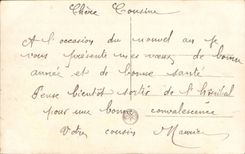 Chère Cousine
A l'occasion du nouvel an je
vous présente mes vœux de bonne
année et de bonne santé
bientôt sortie de l'hôpital
pour une bonne convalescence
Votre cousin Maurice